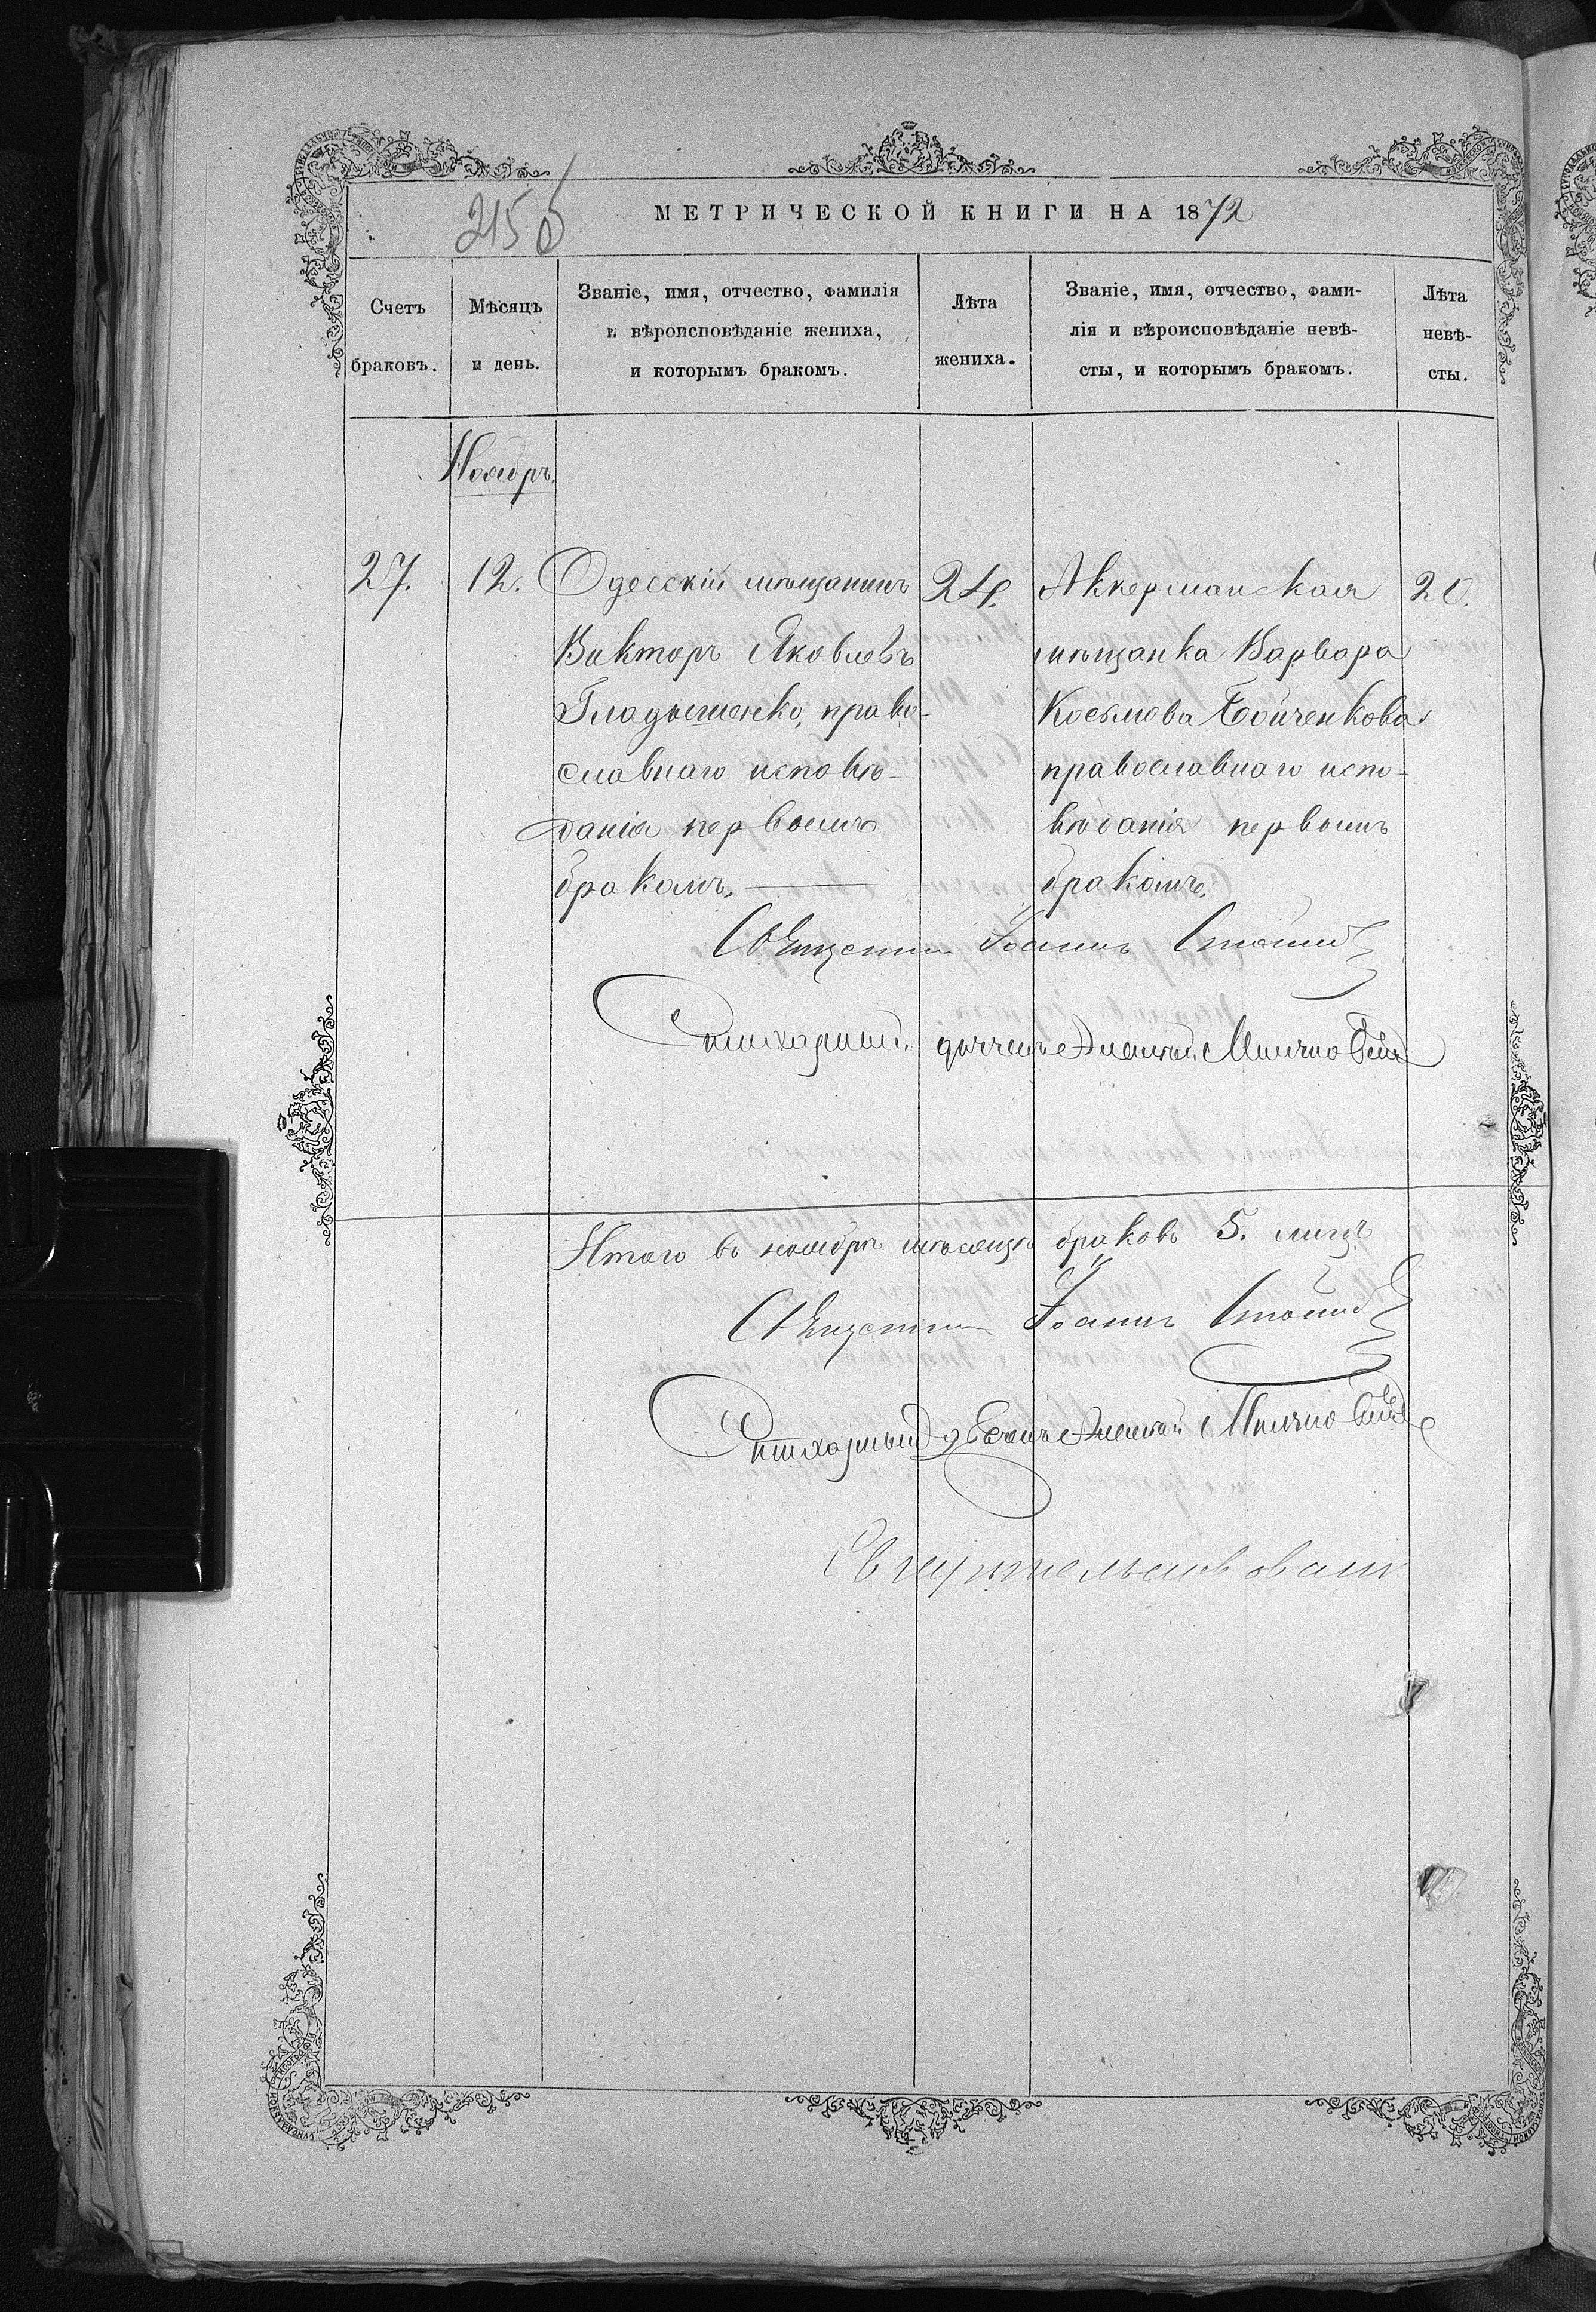 215 об
МЕТРИЧЕСКОЙ КНИГИ НА 1872
Счетъ браковъ.
Мѣсяцъ и день.
Званіе, имя, отчество, фамилія и вѣроисповѣданіе жениха, и которымъ бракомъ.
Лѣта жениха.
Званіе, имя, отчество, фами-
лія и вѣроисповѣданіе невѣ-
сты, и которымъ бракомъ.
Лѣта невѣ-
сты.
Ноябрь.
27.
12.
Одесскій мѣщанинъ
Викторъ Яковлевъ
Гладышенко, право-
славнаго исповѣ-
данія первымъ
бракомъ.
24.
Аккерманская
мѣщанка Варвара
Косьмова Бойченкова
православнаго испо-
вѣданія первымъ
бракомъ.
20.
Священникъ Іоаннъ
Стихарный дьячекъ Алексѣй
Итого въ ноябрѣ мѣсяцѣ браковъ 5.
Священникъ Іоаннъ
Стихарный дьячекъ Алексѣй
Свидѣтельствовалъ